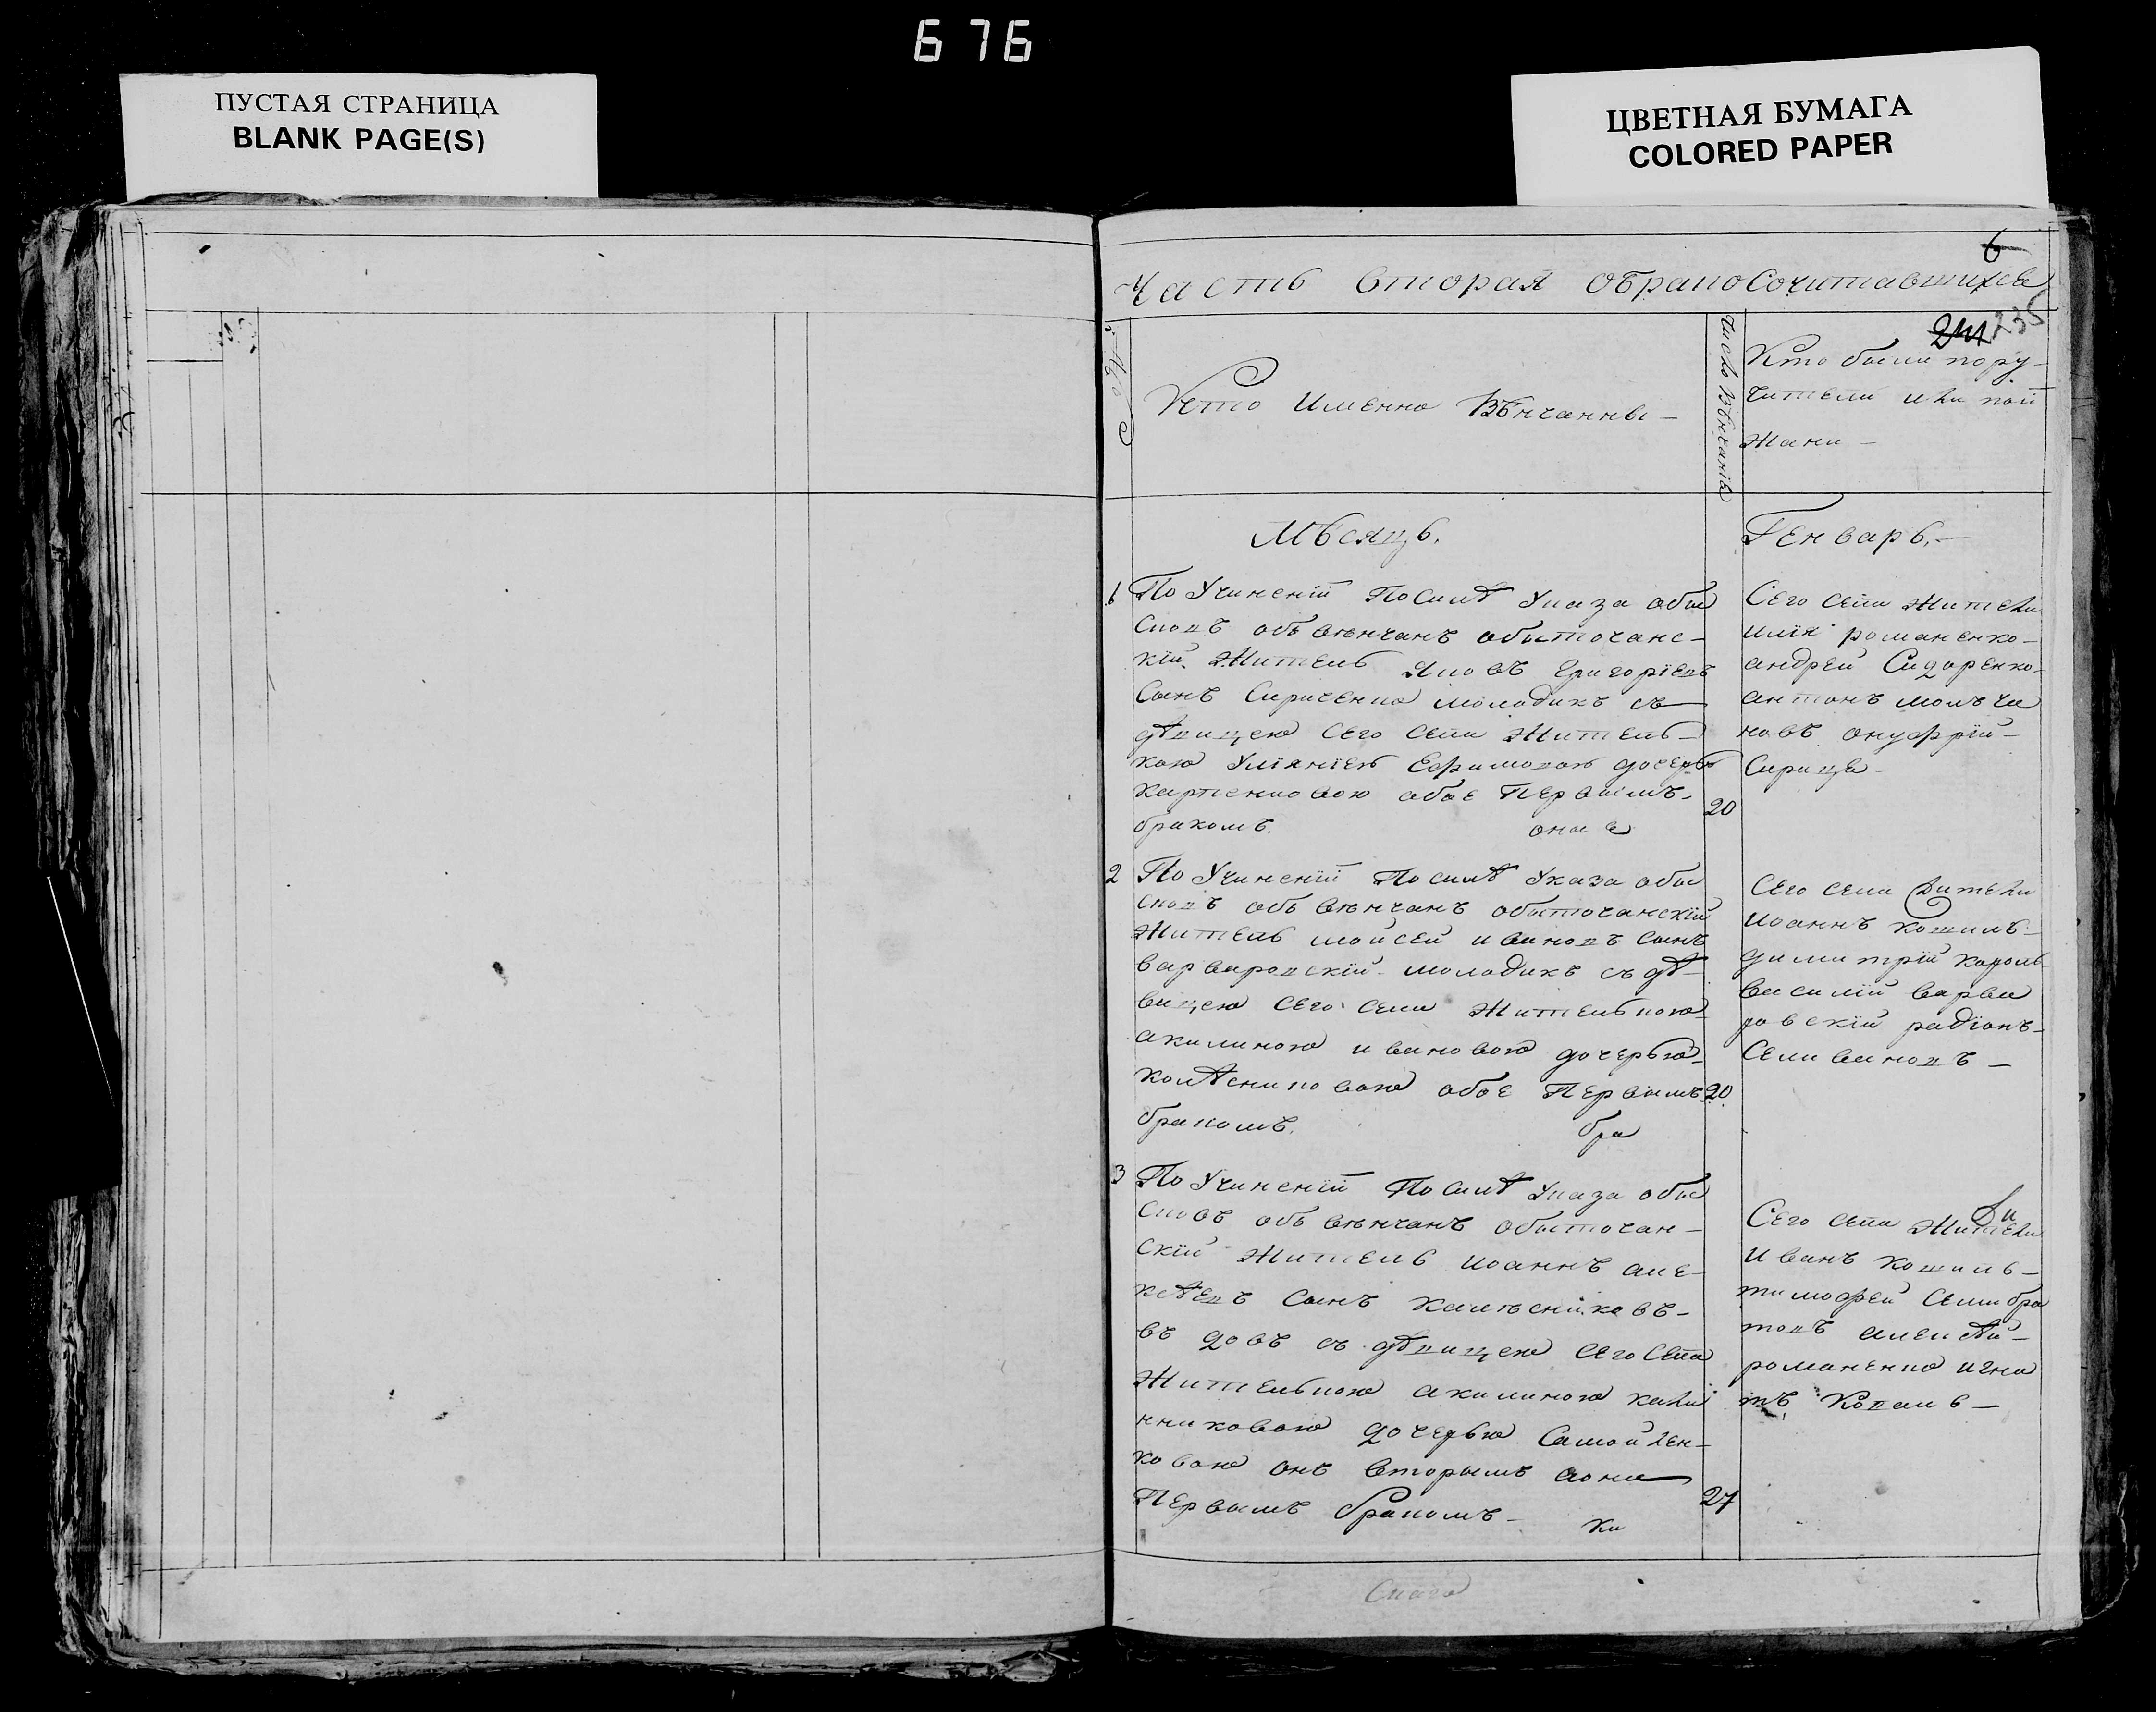 676
ПУСТАЯ СТРАНИЦА
BLANK PAGE(S)
ЦВЕТНАЯ БУМАГА
COLORED PAPER
6
Часть вторая обракосочитавшихся
241 235
№
Кто Именно Вѣнчанны —
Число Вѣнчанія
Кто были пору-
чители или пой
жани —
Мѣсяцъ.
Генварь. —
1 По Учиненїй По силѣ Указа обы
сковъ объ вѣнчанъ обыточанс-
кїй житель Яковъ Григорїевъ
Сынъ Сириченко молодикъ съ
дѣвицею Сего села жительъ-
кою Улїянїею Ефимовою дочерью
обое Первымъ-
бракомъ. 20
Сего села жители
илїя романенко-
андрей Сидоренко-
антонъ молъча
новъ онуфрїй-
Сирица-
2 По Учиненїй По силѣ Указа обы
сковъ объ вѣнчанъ обыточанскїй
житель мойсей ивановъ сынъ
варваровскїй молодикъ съ дѣ-
вицею Сего села жителькою
акилиною ивановою дочерью-
колѣсниковою обое Первымъ 20.
бракомъ. бра
Сего села жители
иоаннъ кошиль-
димитрїй король
василїй варва
ровскїй радїонъ-
Селивановъ —
3 По Учиненїй По силѣ Указа обы
сковъ объ вѣнчанъ обыточан-
скїй житель иоаннъ але-
ксѣевъ сынъ
въ довъ съ дѣвицею Сего села
жителькою акилиною кали
нниковою дочерью Самойлен-
ковою онъ вторымъ аона
Первымъ бракомъ — 27
Сего села жители
Иванъ кошиль-
тимофей Селибра
товъ алексѣй-
романенко игна
тъ Коваль —